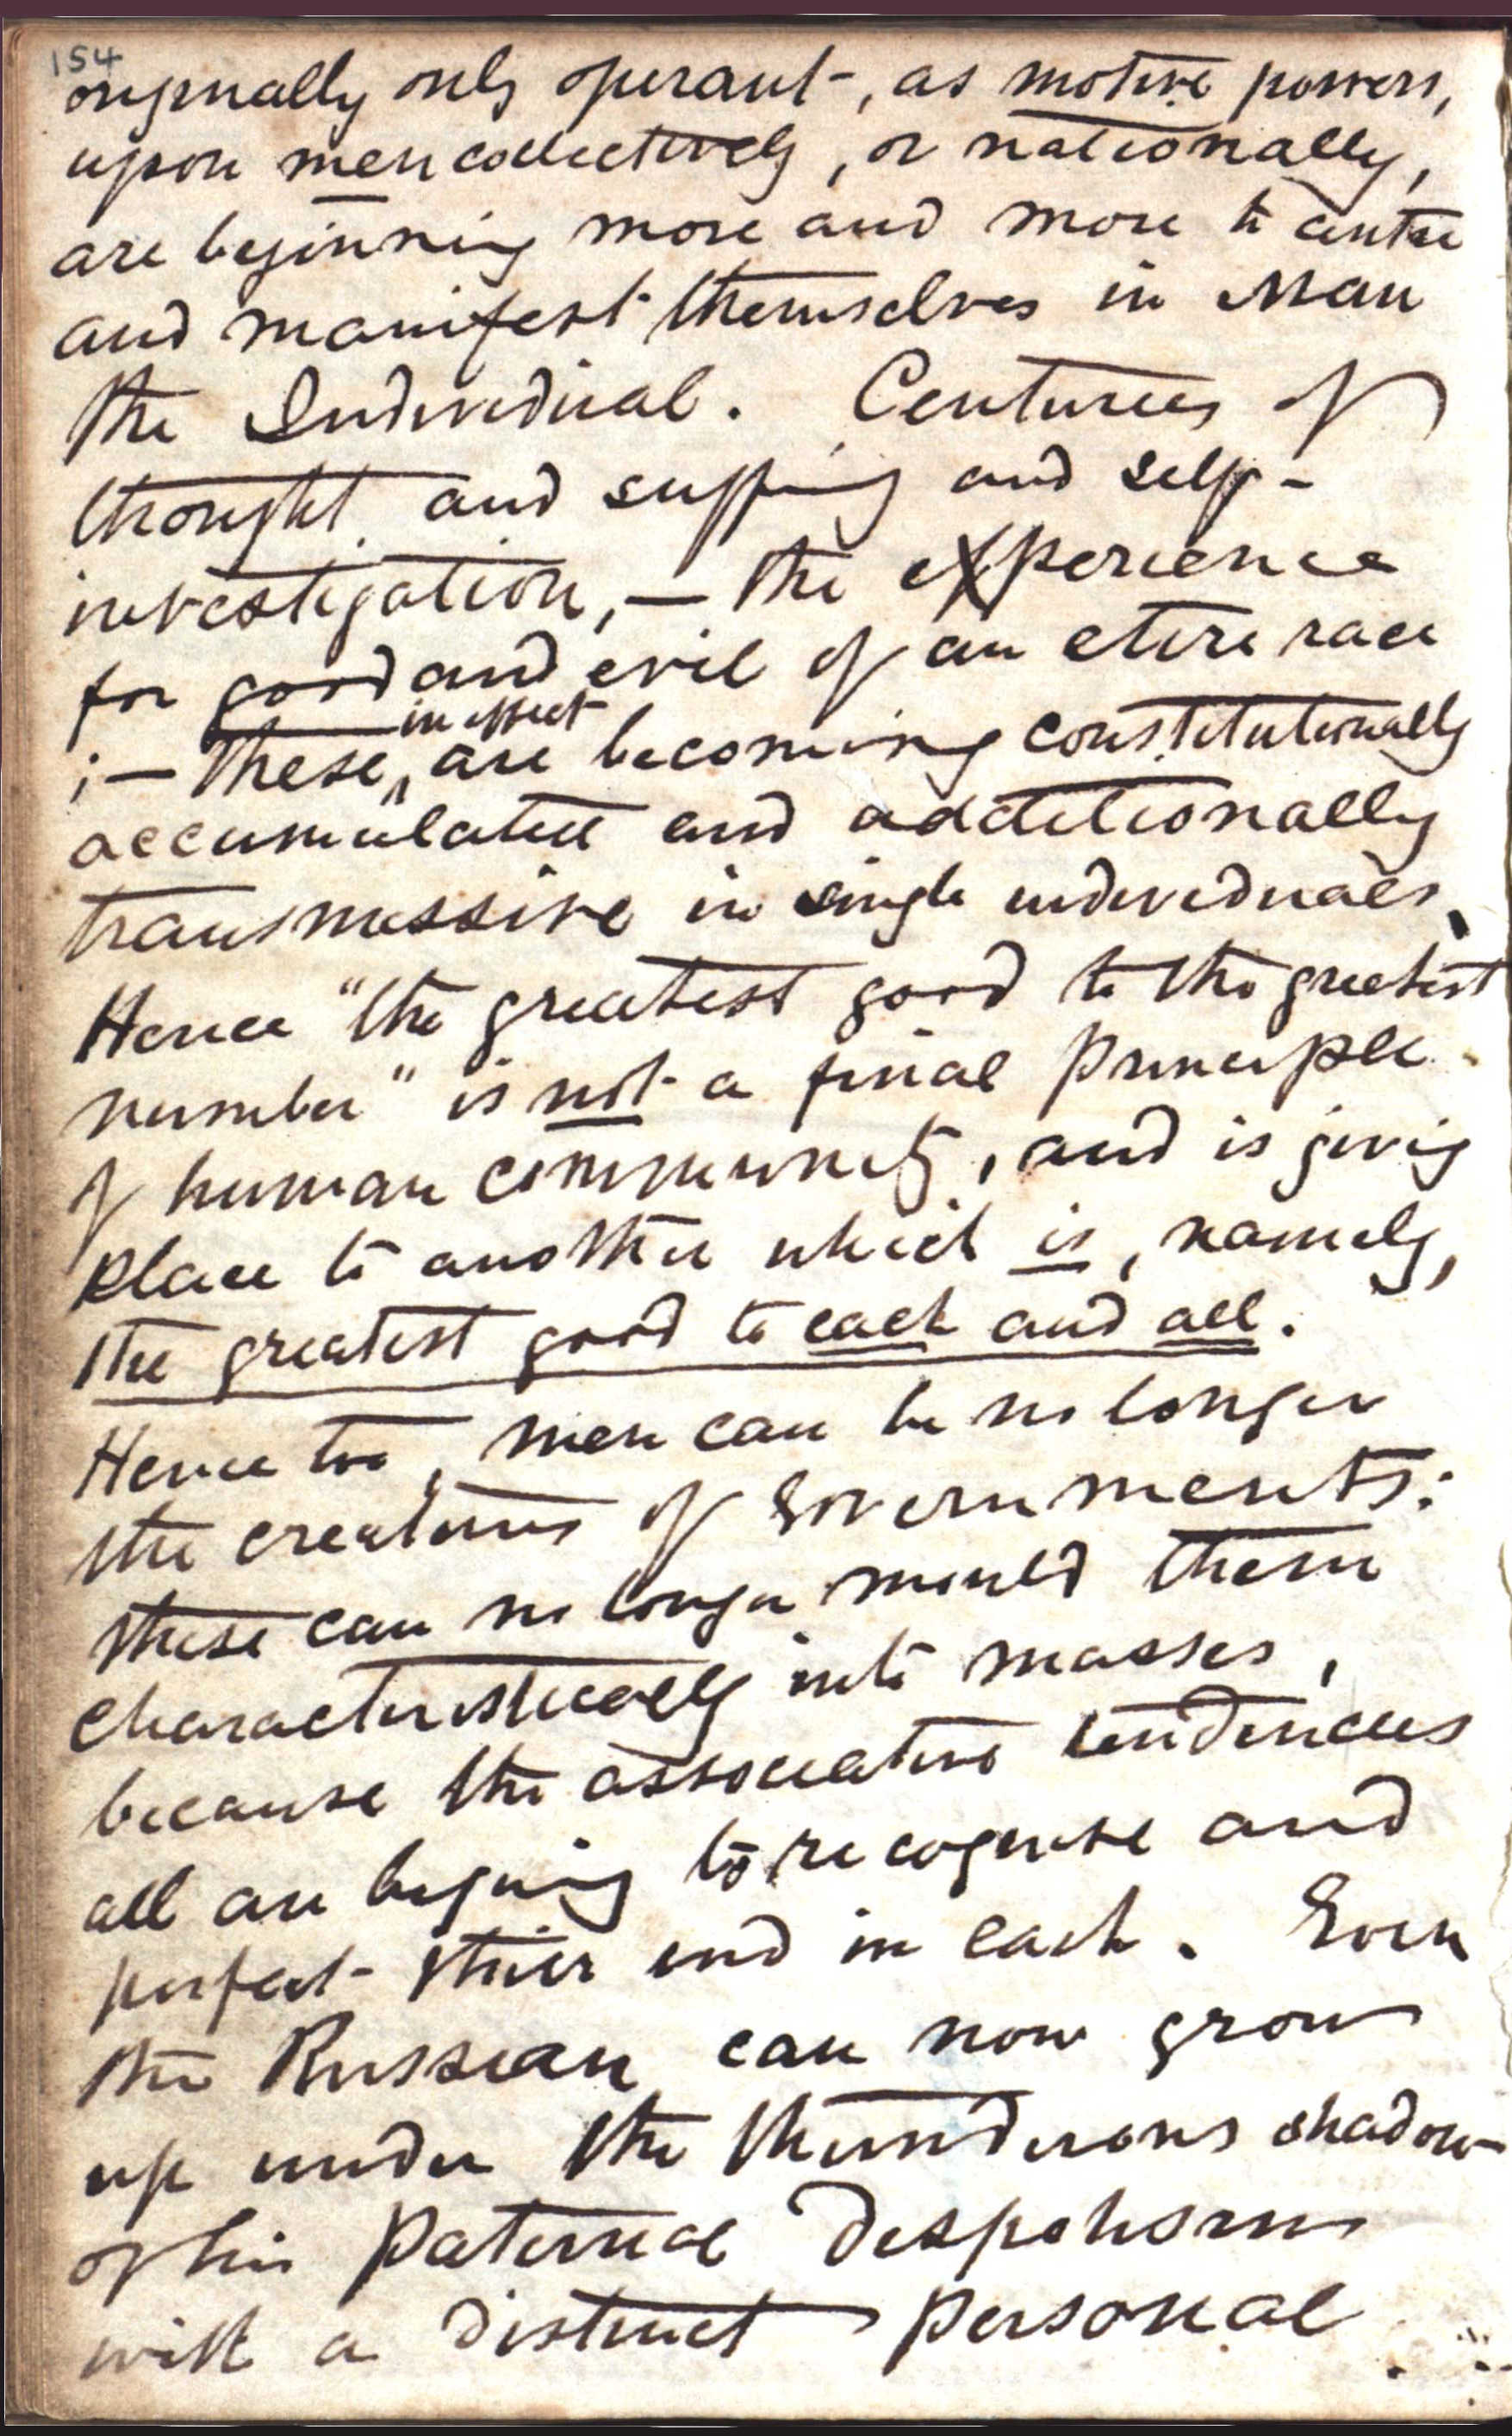 154
originally only operant, as motive powers,
upon men collectively, or nationally,
are beginning more and more to centre
and manifest themselves in Man
the Individual. Centuries of
thought and suffering and self-
investigation, — the experience
for good and evil of an etire race
in effect
; — these, are becoming constitutionally
accumulated and additionally
transmissive in single individuals.
Hence "the greatest good to the greatest
number" is not a final principle
of human community, and is giving
place to another which is, namely,
the greatest good to each and all.
Hence too, men can be no longer
the creatures of Governments:
these can no longer mould them
characteristically into masses,
because the associative tendencies
all are begining to recognise and
perfect their end in each. Even
the Russian can now grow
up under the thunderous shadow
of his paternal despotism
with a distinct personal